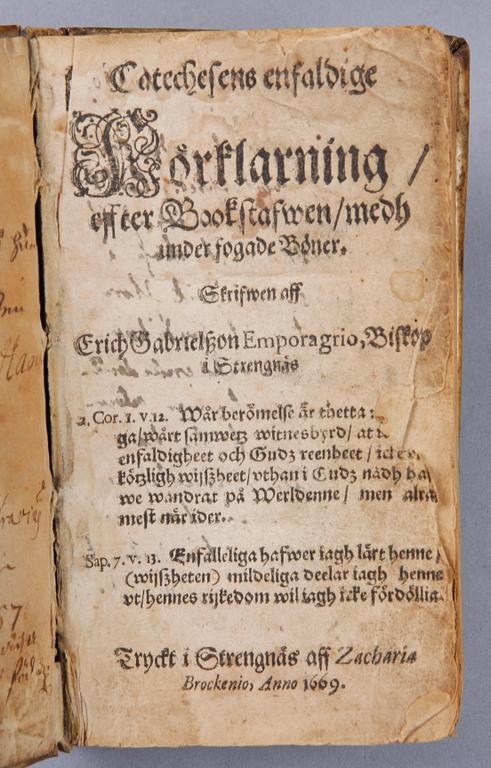 Catechesens enfaldige
Förklarning /
effter Bookstafwen/medh
underfogade Böner.
Skrifwen aff
Erich Gabrielßon Emporagrio, Biskop
i Strengnäs
2. Cor. 1. v. 12. Wår berömelse är thetta :
ga/wårt samwetz witnesbyrd/ at
enfaldigheet och Gudz reenheet / icke
kötzligh wijßheet/vthan i Gudz nådh
we wandrat på Werldenne / men alra
mest når ider.
Sap. 7. v. 13. Enfalleliga hafwer iagh lärt henne /
(wijßheten) mildeliga deelar iagh henne
vt/hennes rijkedom wil iagh icke fördöllia.
Tryckt i Strengnäs aff Zacharia
Brockenio, Anno 1669.